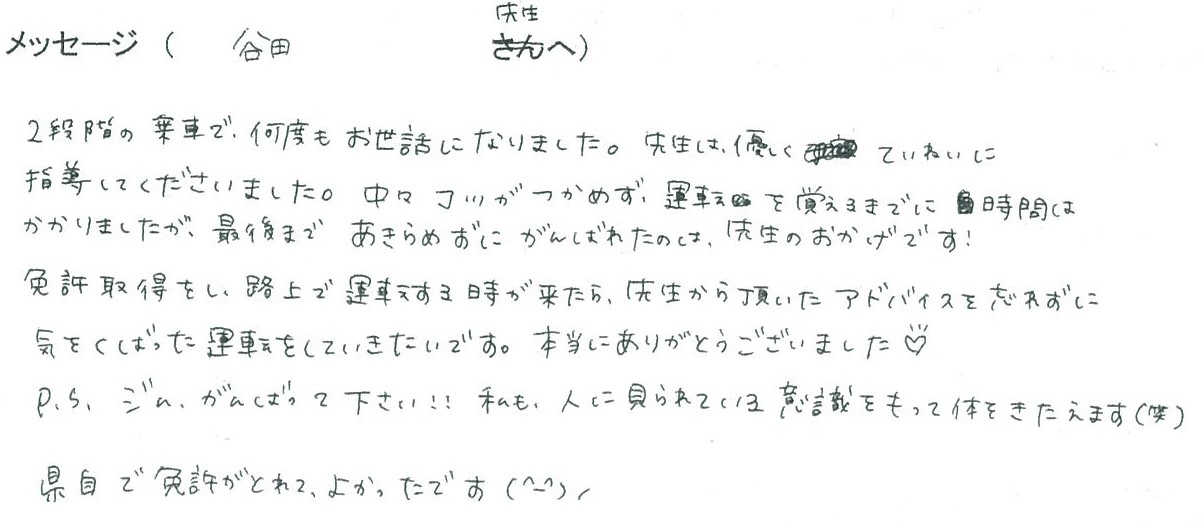 メッセージ ( 谷田 先生へ)
2段階の乗車で、何度もお世話になりました。先生は、優しくていねいに
指導してくださいました。中々コツがつかめず、運転を覚えるまでに時間は
かかりましたが、最後まであきらめずにがんばれたのは、先生のおかげです!
免許取得をし、路上で運転する時が来たら、先生から頂いたアドバイスを忘れずに
気をくばった運転をしていきたいです。本当にありがとうございました♡
P.S. ジム、がんばって下さい!! 私も、人に見られている意識をもって体をきたえます(笑)
県自で免許がとれて、よかったです(^-^)